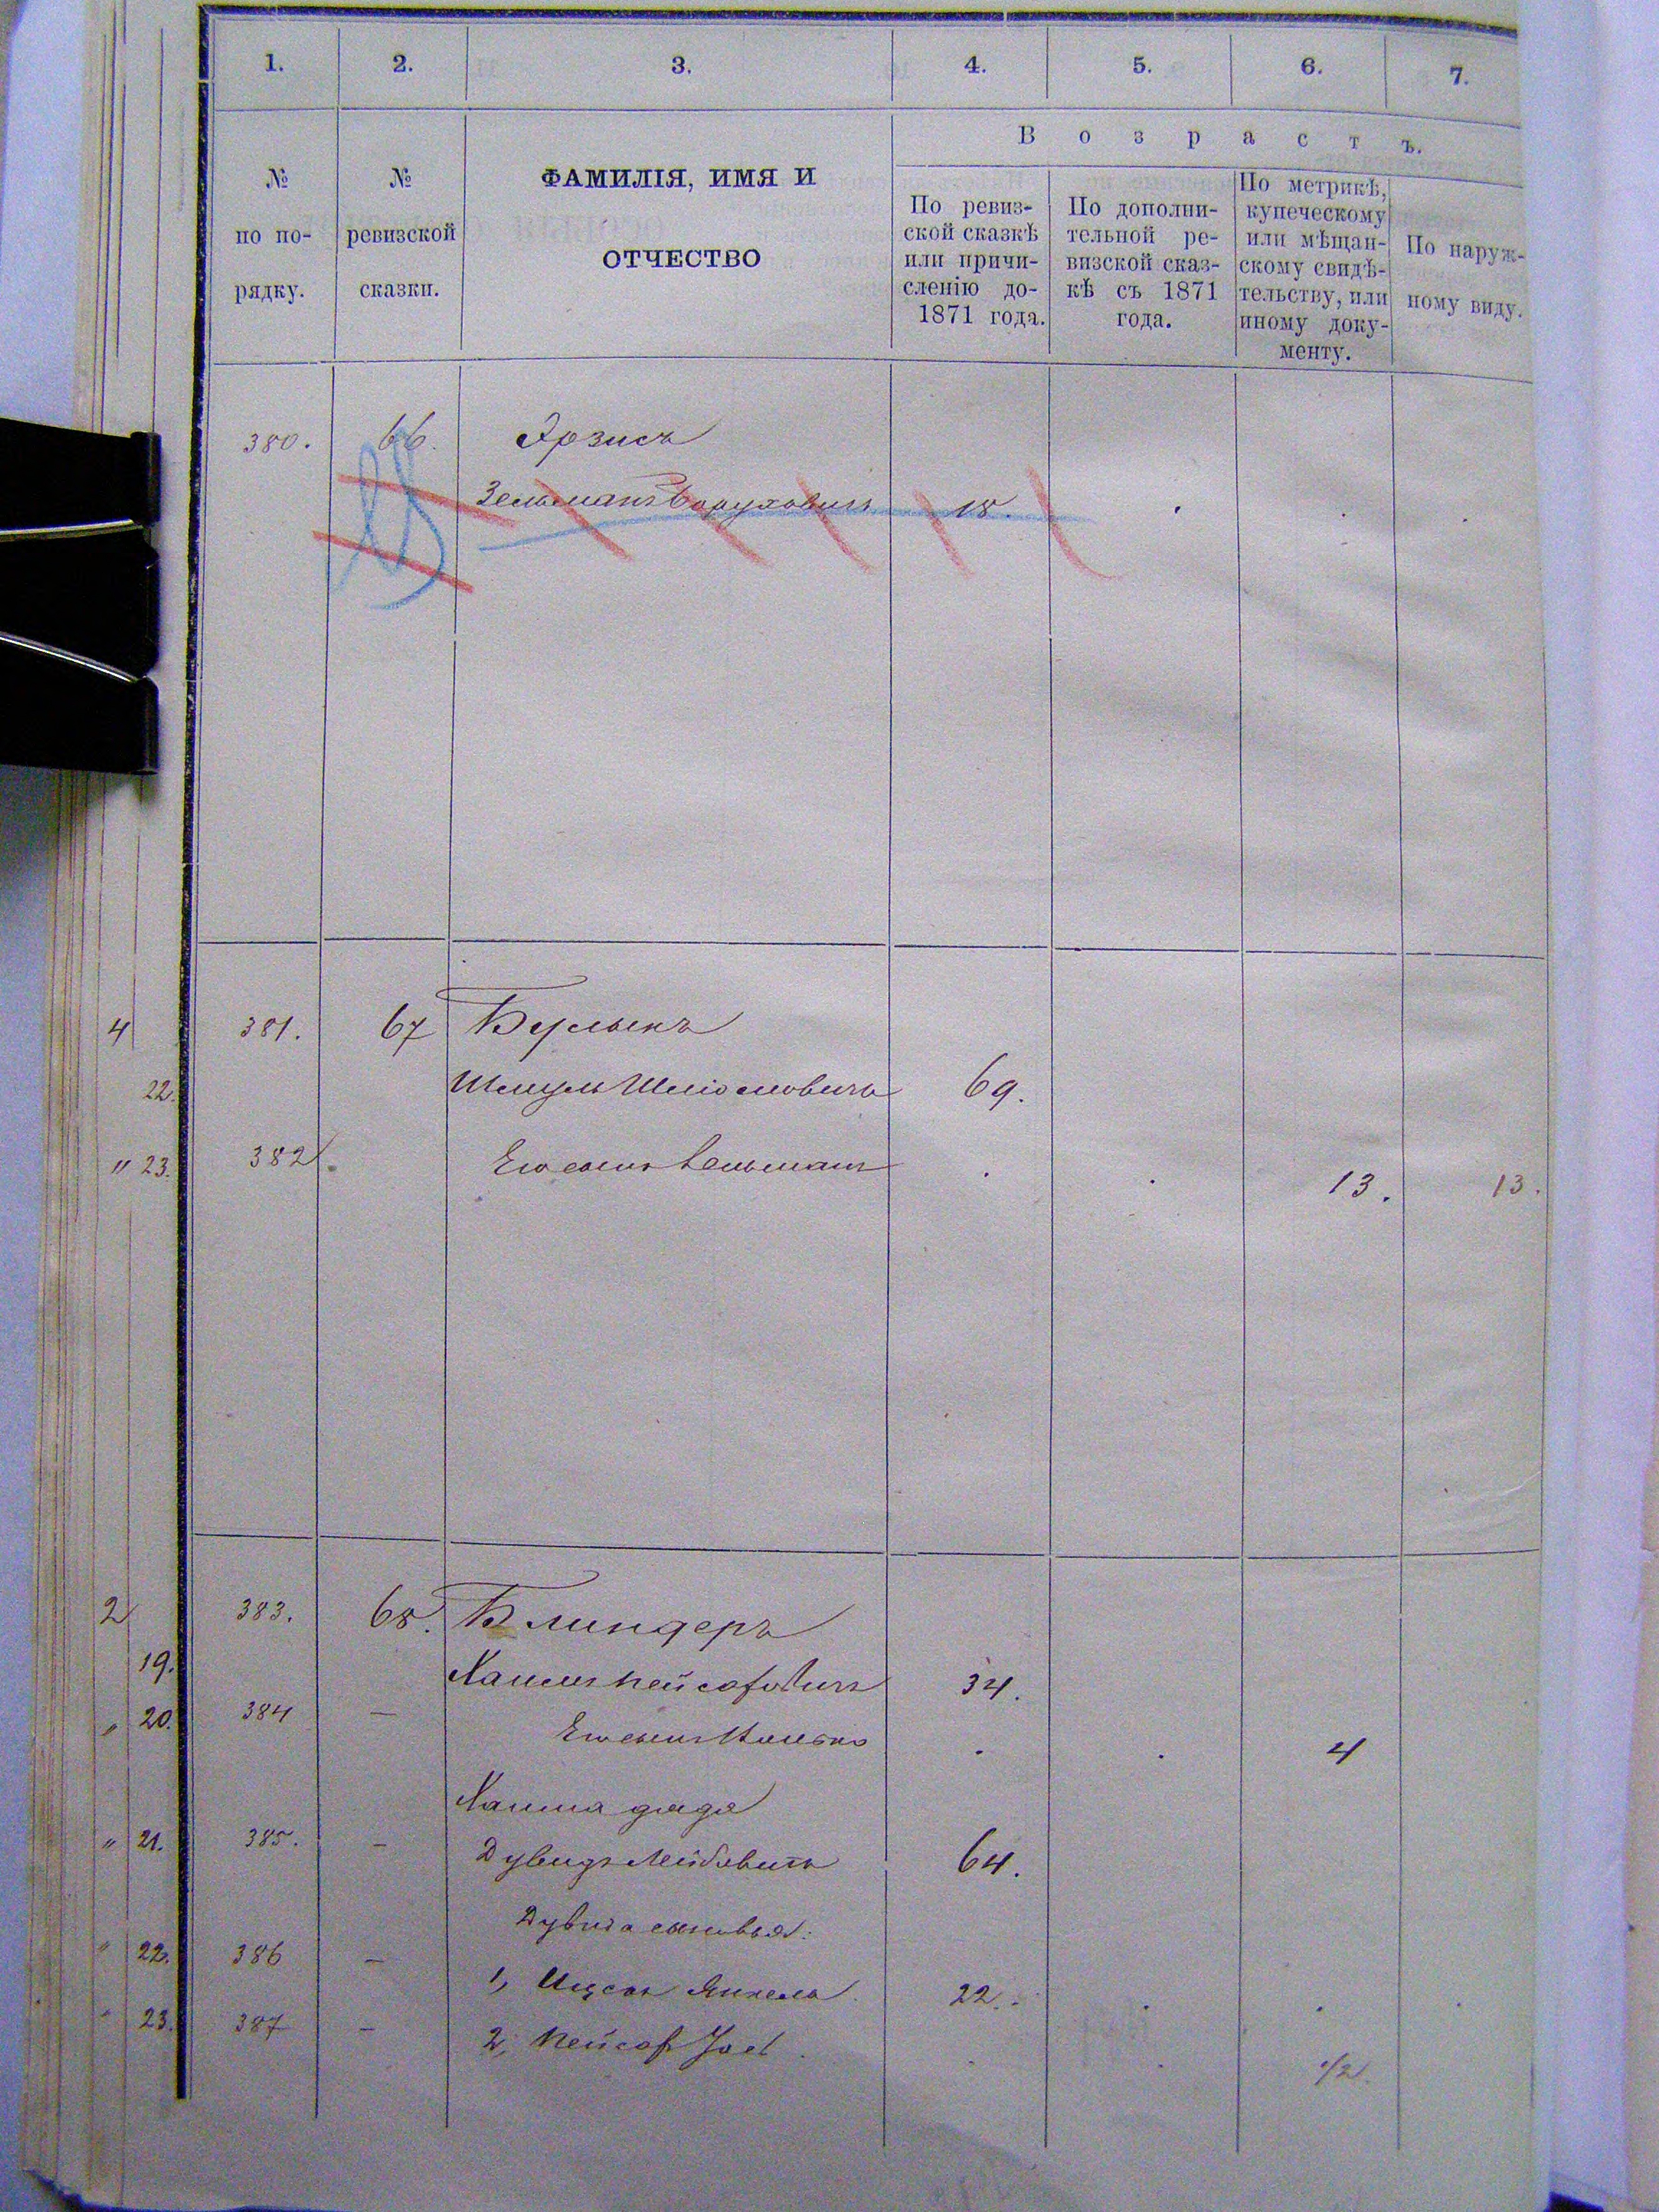 1. 2. 3. 4. 5. 6. 7.
№ по по-рядку.
№ ревизской сказки.
ФАМИЛІЯ, ИМЯ И
ОТЧЕСТВО
Возрастъ.
По ревиз-
ской сказкѣ
или причи-
сленію до-
1871 года.
По дополни-
тельной ре-
визской сказ-
кѣ съ 1871
года.
По метрикѣ,
купеческому
или мѣщан-
скому свидѣ-
тельству, или
иному доку-
менту.
По наруж-
ному виду.
380. 66.
Зельманъ Боруховичъ 18.
4 381. 67 Булькъ
22. Шмуль Шліомовичъ 69.
" 23. 382. Его сынъ Зельманъ 13. 13.
2 383. 68. Блиндеръ
19. Хаимъ Пейсаховичъ 34.
" 20. 384 — Его сынъ 4
Хаима дядя
" 21. 385. — Дувидъ Лейбовичъ 64.
Дувида сыновья:
" 22. 386 — 1, Ицсокъ Янкель 22.
" 23. 387 — 2, Пейсахъ 1/2.